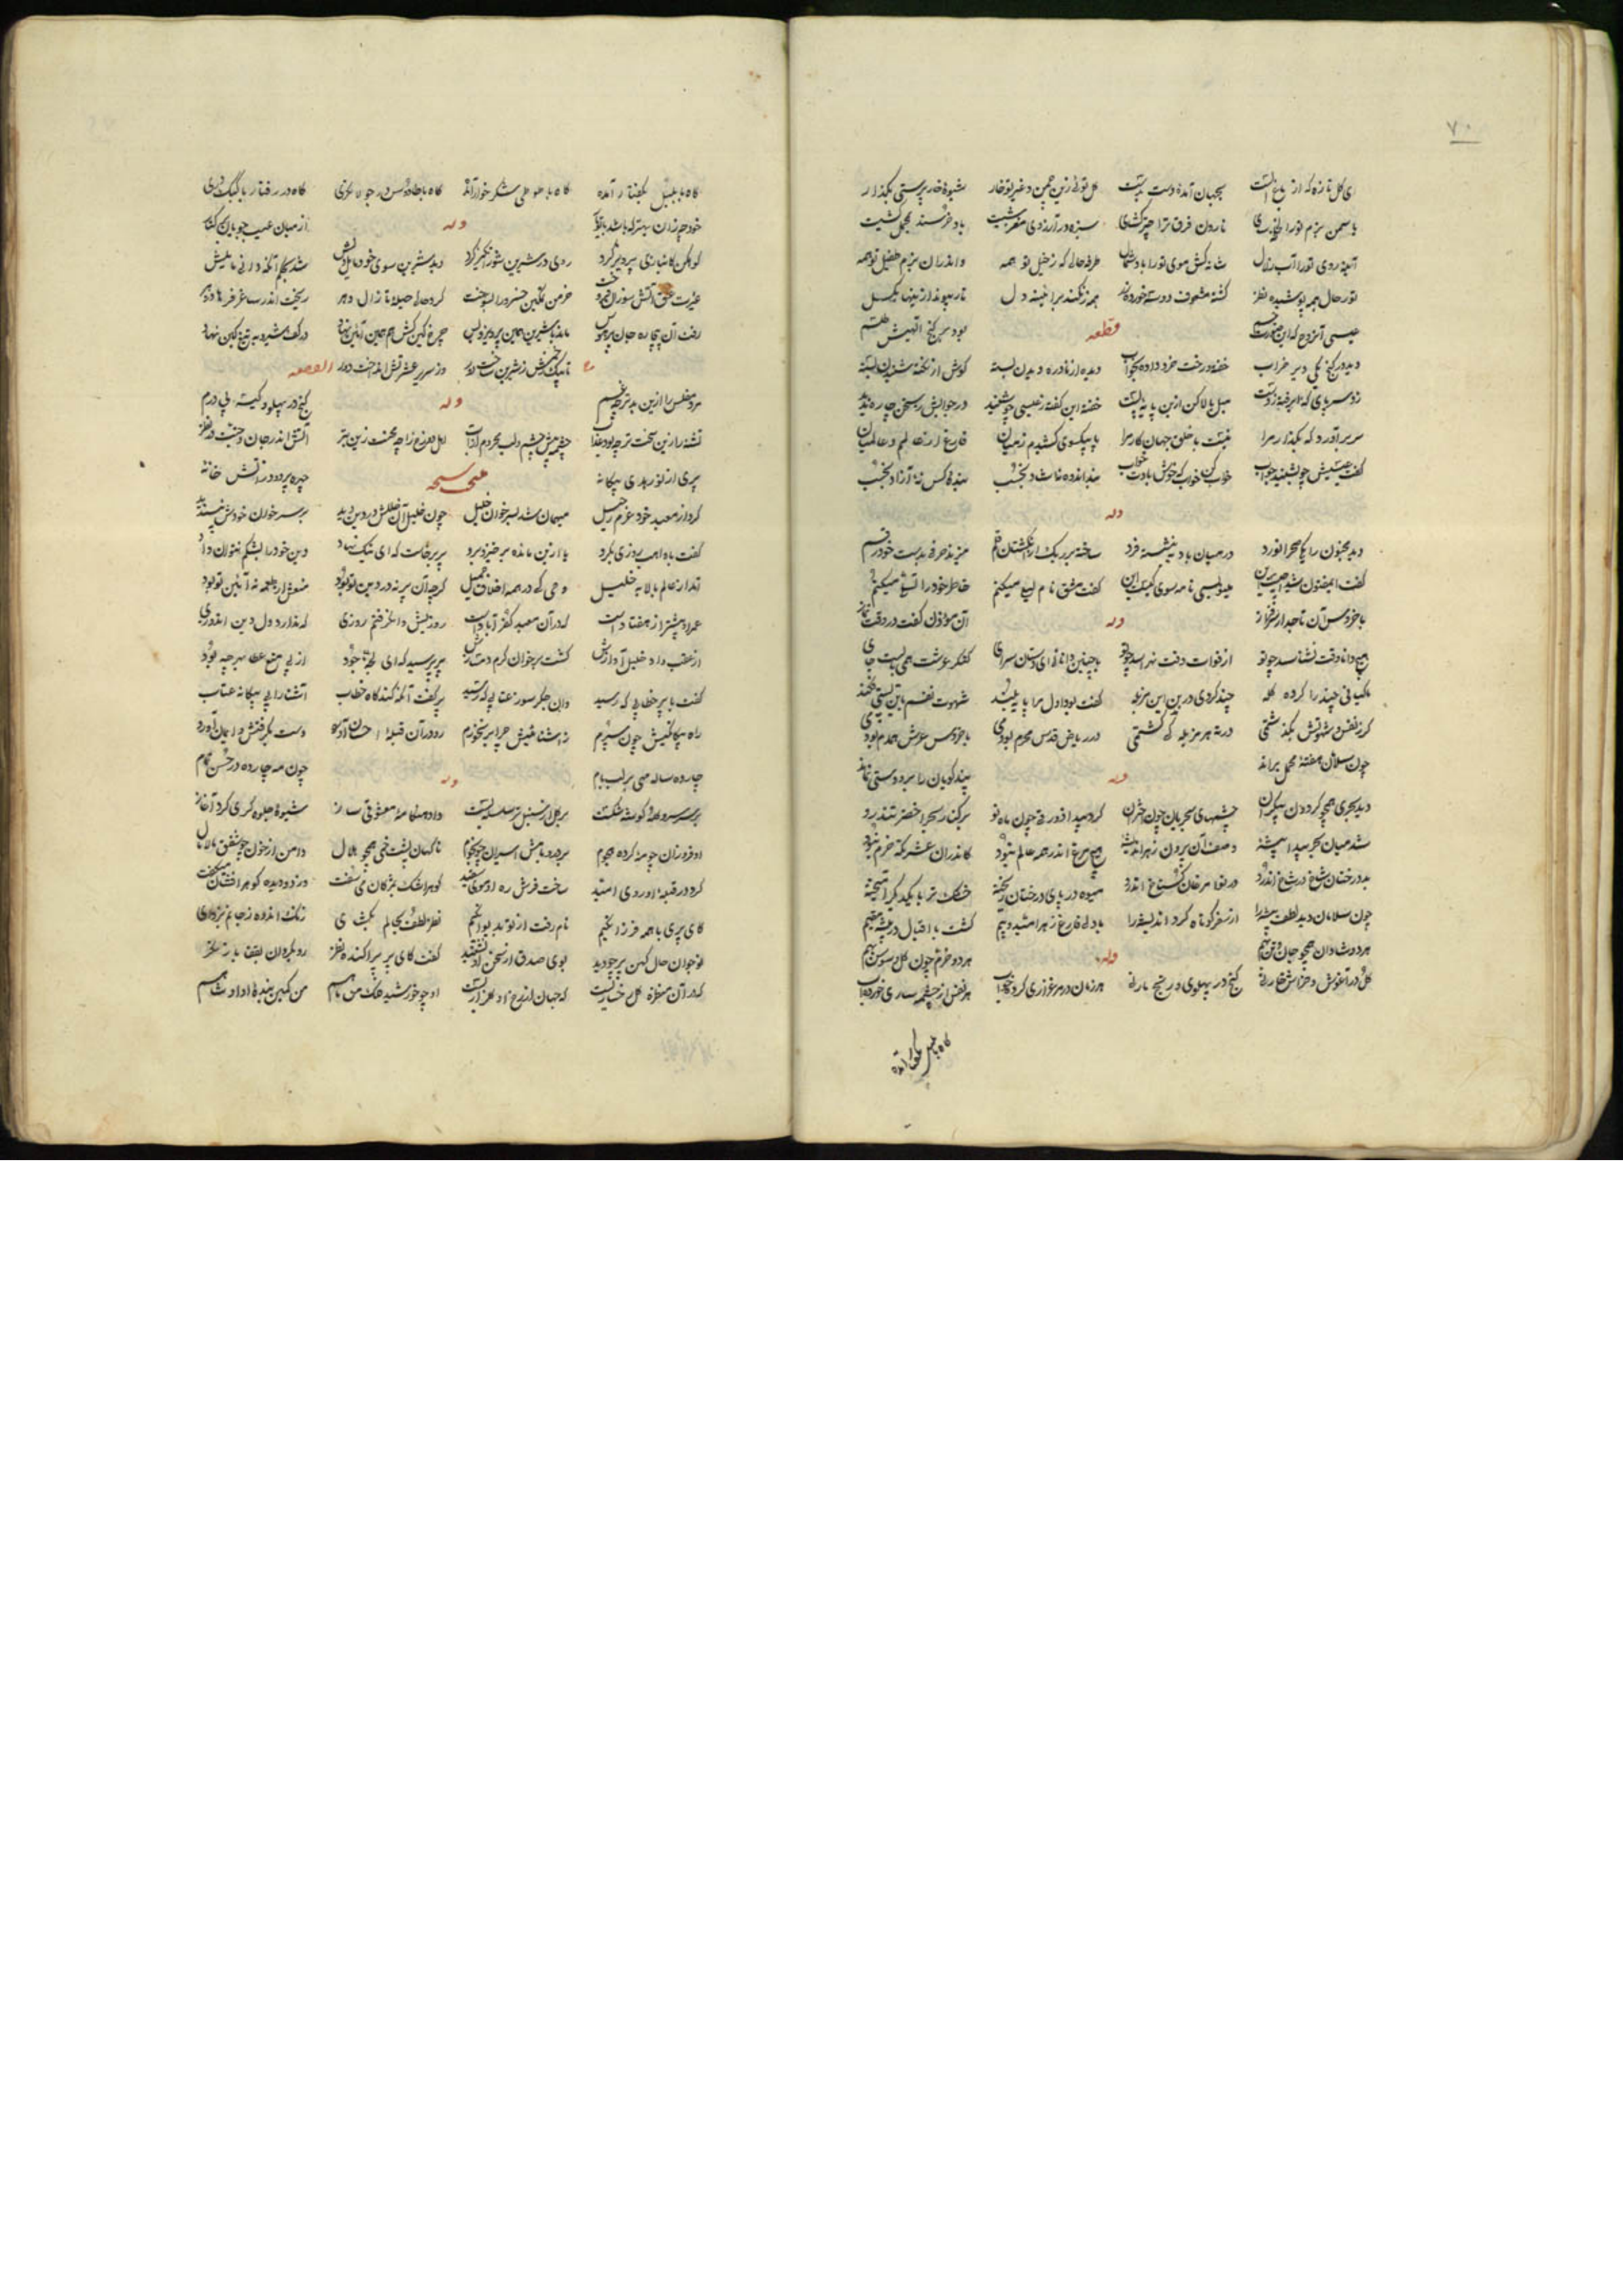 ۷۰
ای کل تازه که از باغ الست بجهان آمدهٔ دست بدست کل توئی زین چمن و غیر تو خار شیوهٔ خار پرستی بکذار
یاسمن بزم تورا نارون فرق ترا چتر کشی سبزه در آرزوی باد
آینه روی تورا آب زلال شانه کش موی تورا باد شمال طرفه حالی که ز خیل تو همه واندران بزم طفیل تو همه
تو در حال همه پوشیده نظر کشته مشعوف همه زنکند بر آیینه دل
قطعه
عیسی آنروح که بود بر کنج
دید در کنج یکی دیر خراب خفته و رخت خرد داده بخواب دیده از نادره دیدن بسته کوش از نکته شنیدن بسته
میل بالا کن ازین پایهٔ پست خفته این نکته ز عیسی چو شنید در جوابش ز سخن چاره ندید
سر برآورد که بکذار مرا نیست با خلق جهان کار مرا پا بیکسوی کشیدم ز میان فارغ از عالم و عالمیان
کفت عیسیش چو بشنید جواب خواب کن خواب که خوش بادت خواب بندهٔ کس نهٔ آزاد بخسب
وله
دید مجنون را یکی صحرا نورد در میان بادیه بنشسته فرد ساخته بر ریک از انکشتان قلم میزند حرفی بدست خود رقم
کفت ای مفتون شیدا چیست این مینویسی نامه سوی کیست این کفت مشق نام لیلی میکنم خاطر خود را تسلی میکنم
وله
با خروس آن تاجدار سرفراز آن مؤذن کفت در وقت نماز
هیچ دانا وقت نشناسد چو تو از فوات وقت نهراسد چو تو با چنین دانائی ای دستان سرای کنکر عرشت همی بایست جای
ماکیانی چند را کرده کله چند کردی در بن این مزبله کفت بود اول مرا پایه بلند شهوت نفسم باین پستی فکند
کر ز نفس و شهوتش بکذشتمی در ته هر مزبله کی کشتمی در ریاض قدس محرم بودمی با خروس عرش همدم بودمی
وله
چون سلامان هفتهٔ محمل براند پند کویان را برو دستی نماند
دید بحری همچو کردون بیکران چشمهای بحریان چون اختران کرد پیدا زورقی چون ماه نو برکنار بحر اخضر تندرو
شد میان بحر پیدا بیشهٔ وصف آن بیرون ز هر اندیشهٔ هیچ مرغ اندر همه عالم نبود کاندران عشرتکه خرم نبود
بد درختان شاخ در شاخ اندرو در نوا مرغان کستاخ اندرو میوه در پای درختان ریخته خشک و تر با یکدکر آمیخته
چون سلامان دید لطف بیشه را از سفر کوتاه کرد اندیشه را با دلی فارغ ز هر امید و بیم کشت با ابسال در بیشه مقیم
وله
هر دو شادان همچو جان و تن بهم هر دو خرم چون کل و سوسن بهم
کل در آغوش و خراش خار نی کنج در پهلو و رنج مار نی هر زمان در مرغزاری کرده خواب هر نفس از چشمه ساری خورده آب
کاه با بلبل بکفتار آمده
کاه با بلبل بکفتار آمده کاه با طوطی شکر خوار آمده کاه با طاوس در جولانکری کاه در رفتار با کبک دری
خود چه زان بهتر که باشد با تو یار از میان عیب جویان برکنار
وله
کوهکن کان بازی پرویز کرد روی در شیرین شورانکیز کرد دید شیرین سوی خود مایل دلش شد بحکم آنکه دانی مایلش
غیرت عشق آتش سوزان فروخت خرمن تمکین خسرو را بسوخت کرد حالی حیلهٔ تا زال دهر ریخت اندر ساغر فرهاد زهر
رفت آن بیچاره جان پر هوس ماند با شیرین همین پرویز و بس چرخ کین کش هم همین آیین نهاد در کف شیرویه تیغ کین نهاد
تا بیک زخمش ز شیرین ساخت دور وز سریر عشرتش انداخت دور
القصه
مرد مفلس را ازین بدتر چه غم کنج در پهلو و کیسه بی درم
وله
تشنه را زین سخت تر چه بود عذاب چشمه پیش چشم و لب محروم از آب اهل دوزخ را چه محنت زین بتر آتش اندر جان و جنت در نظر
پری از نور هدی بیکانه چهره پر دود ز آتش خانه
منتخب سبحه
کرد از معبد خود عزم رحیل میهمان شد بسر خوان خلیل چون خلیل آن خللش در دین دید بر سر خوان خودش نپسندید
کفت با واهب روزی بکرو یا ازین مائده برخیز و برو پیر برخاست که ای نیک نهاد دین خود را بشکم نتوان داد
آمد از عالم بالا به خلیل وحی کی در همه اخلاق جمیل کرچه آن پیر نه در دین تو بود منعش از طعمه نه آیین تو بود
عمر او بیشتر از هفتاد است که در آن معبد کفر آباد است روزیش وا نکرفتم روزی که ندارد دل دین اندوزی
از عقب داد خلیل آوازش کشت بر خوان کرم دمسازش پیر پرسید که ای لجهٔ جود از پی منع عطا بهر چه بود
کفت با پیر خطابی که رسید وان جکر سوز عتابی که شنید پیر کفت آنکه کند کاه خطاب آشنا را پی بیکانه عتاب
راه بیکانکیش چون سپرم ز آشنائیش چرا بر نخورم رو در آن قبلهٔ احسان آورد دست بکرفتش و ایمان آورد
وله
چارده ساله مهی بر لب بام چون مه چارده در حسن تمام
بر سر سرو کله کوشه شکست بر کل از سنبل تر سلسله بست داد هنکامهٔ معشوقی ساز شیوهٔ جلوه کری کرد آغاز
او فروزان چو مه کرده هجوم بر در و بامش اسیران چو نجوم ناکهان پشت خمی همچو هلال دامن از خون چو شفق مالامال
کرد در قبلهٔ او روی امید ساخت فرش ره او موی سفید کوهر اشک بمژکان می سفت وز دو دیده کوهر افشان میکفت
کای پری با همه فرزانکیم نام رفت از تو بدیوانکیم نظر لطف بحالم بکشای زنک اندوه ز جانم بزدای
نوجوان حال کهن پیر چو دید بوی صدق از سخن او نشنید کفت کای پیر پراکنده نظر رو بکردان بقفا باز نکر
که در آن منظره کل رخساریست که جهان از رخ او کلزاریست او چو خورشید فلک من ماهم من کمین بندهٔ او او شاهم